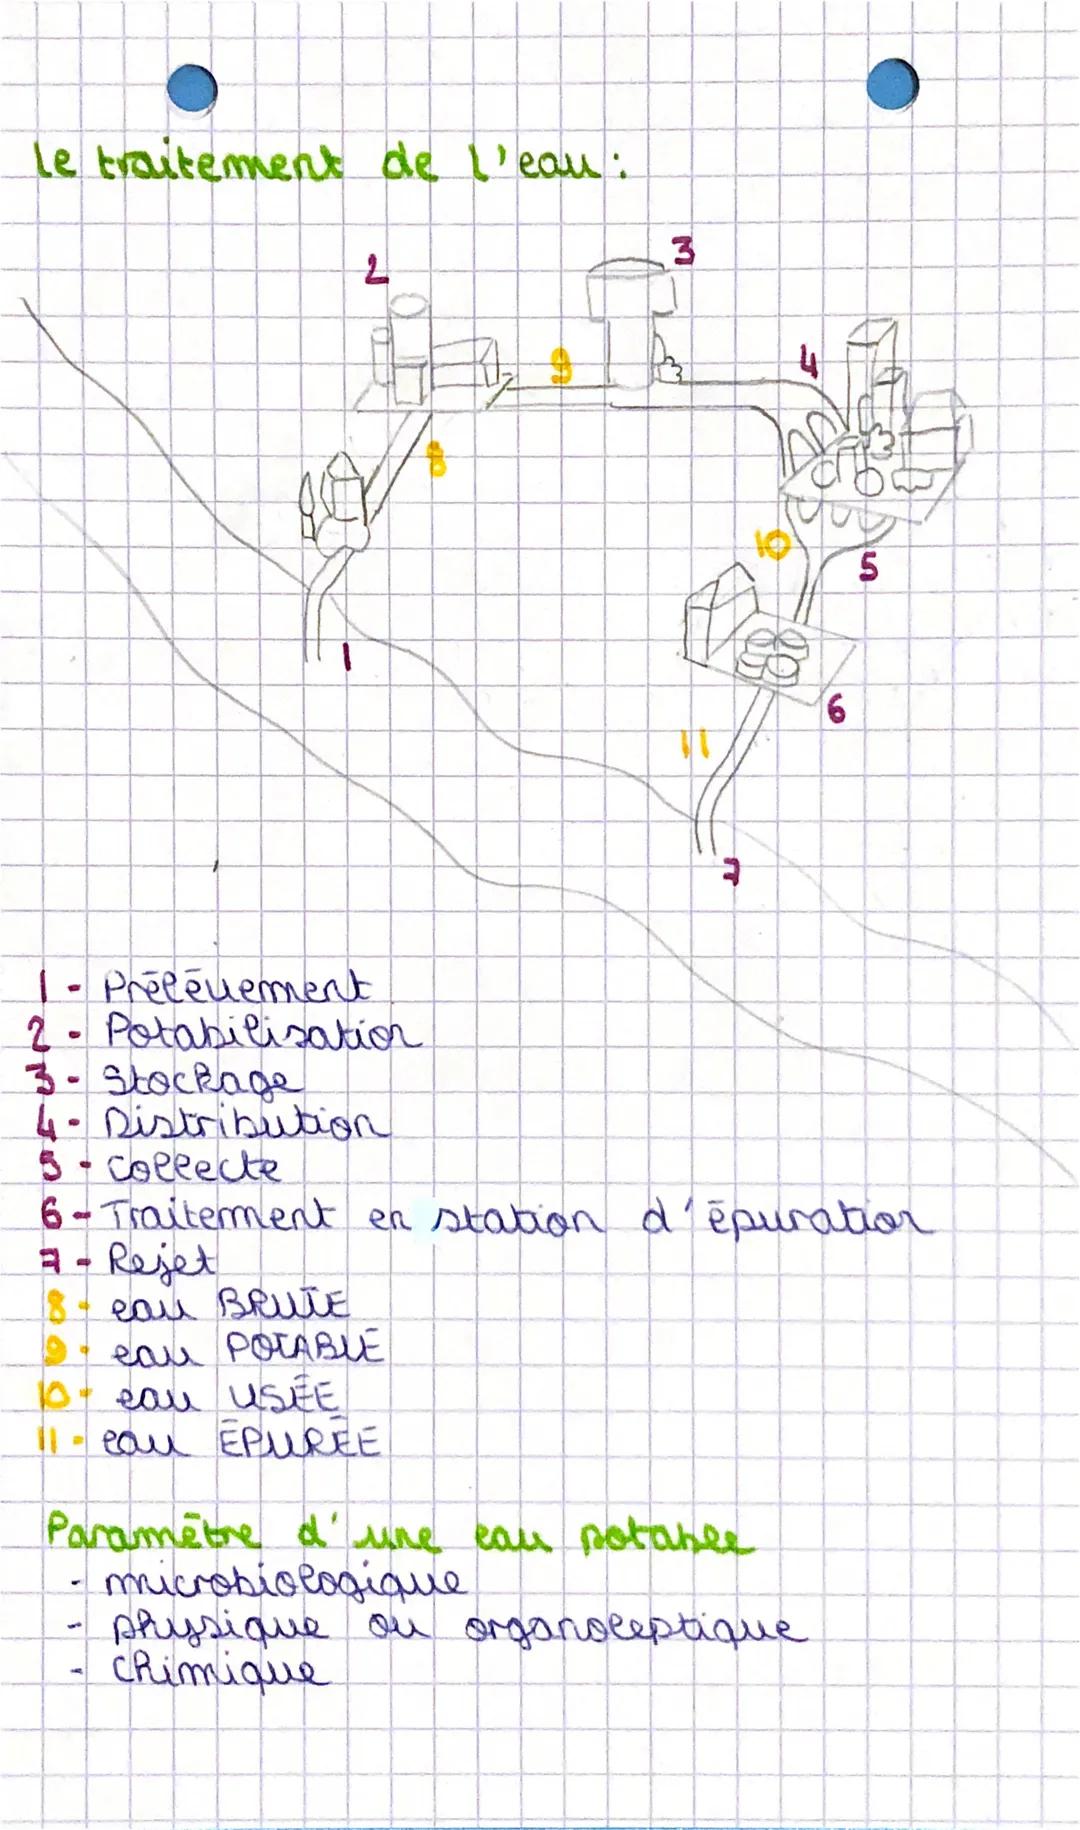 Le traitement de l'eau :
2
3
9
4
8
10
5
1
6
11
7
1 - Prélèvement
2 - Potabilisation
3 - Stockage
4 - Distribution
5 - collecte
6 - Traitement en station d'épuration
7 - Rejet
8 - eau BRUTE
9 - eau POTABLE
10 - eau USÉE
11 - eau ÉPURÉE
Paramètre d'une eau potable
- microbiologique
- physique ou organoleptique
- chimique